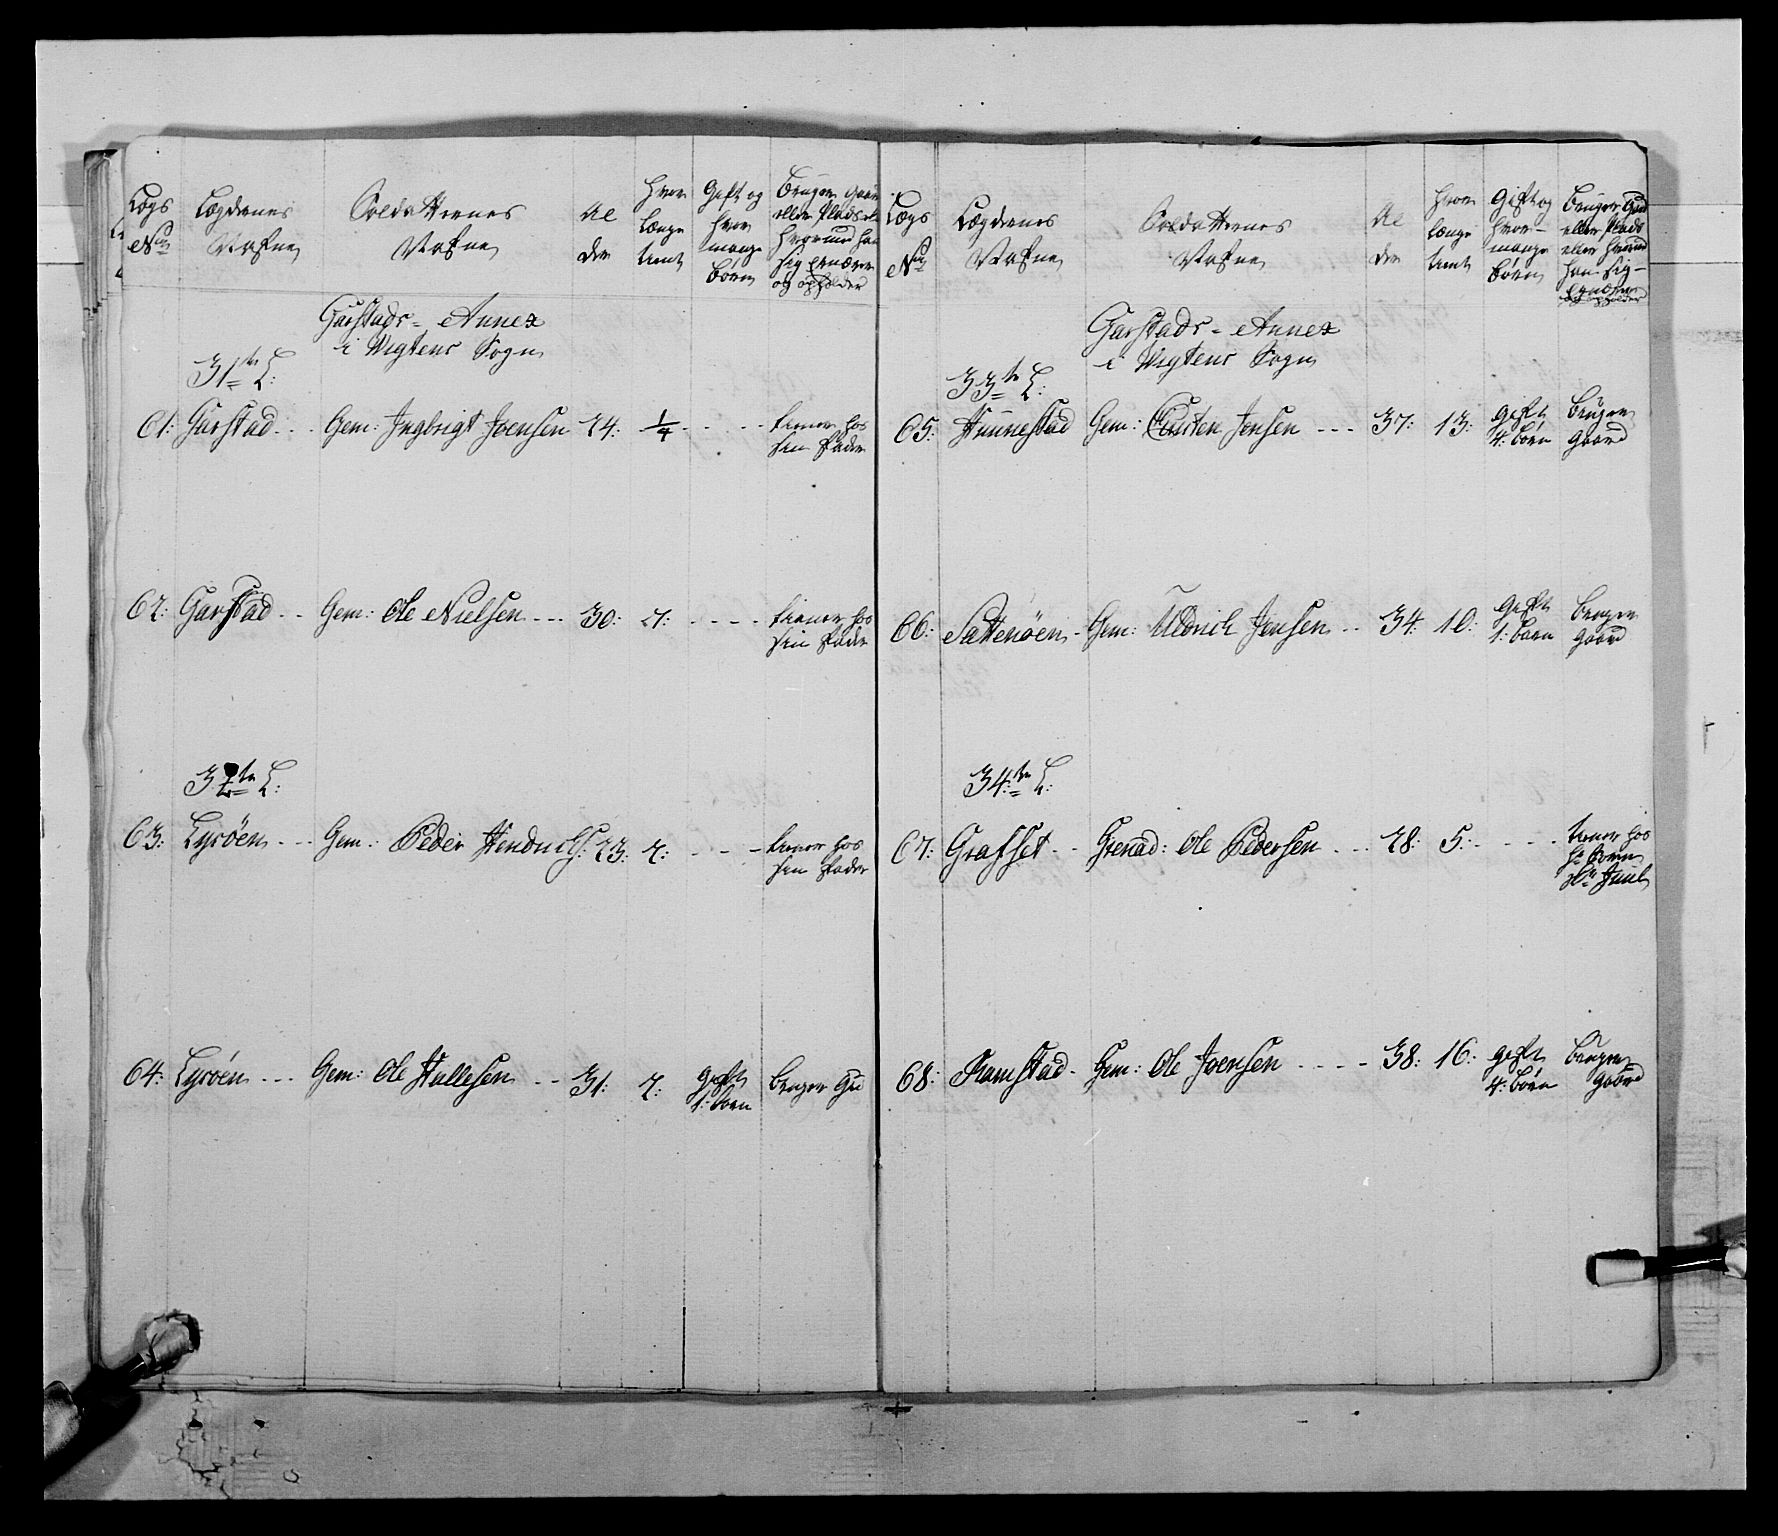 Lægs Nr.
Lægdernes Nafne
Soldatternes Nafne
Al der
Hvor længe tient
Gift og hvor mange børn
Bruger Gaar eller Plads el hvormed han sig ernærer og opholder
Garstads - Annex
i Wigtens Sogn
31te L:
61: Garstad .. Gem: Ingbrigt Joensen 24: 1/4 - - - - tiener hos
sin Fader
62: Garstad .. Gem: Ole Nielsen ... 30: 7: - - - - tiener hos
sin Fader
32te L:
63: Lysøen ... Gem: Peder Hendrichs: 23: 2: - - - tiener hos
sin Fader
64: Lysøen ... Gem: Ole Hallesen .. 31: 2: gift
1: born bruger Gr
Lægs Nr.
Lægdernes Nafne
Soldatternes Nafne
Al der
Hvor længe tient
Gift og hvor- mange børn
Bruger Gaar eller Plads eller hvormed han sig - ernærer og opholder
Garstads - Annex
i Wigtens Sogn
33te L:
65: Hunnestad Gem: Carsten Jensen ... 37: 13: gift
4: børn Bruger
gaard
66: Sattenøen . Gem: Uldrich Jensen .. 34: 10: gift
1: born Bruger
gaard
34te L:
67: Grafset .. Grenad: Ole Pedersen ... 28: 5: - - - - tiener hos
Hr
Juul
68: Ramstad . Gem: Ole Joensen .... 38: 16: gift
4: børn bruger
gaard